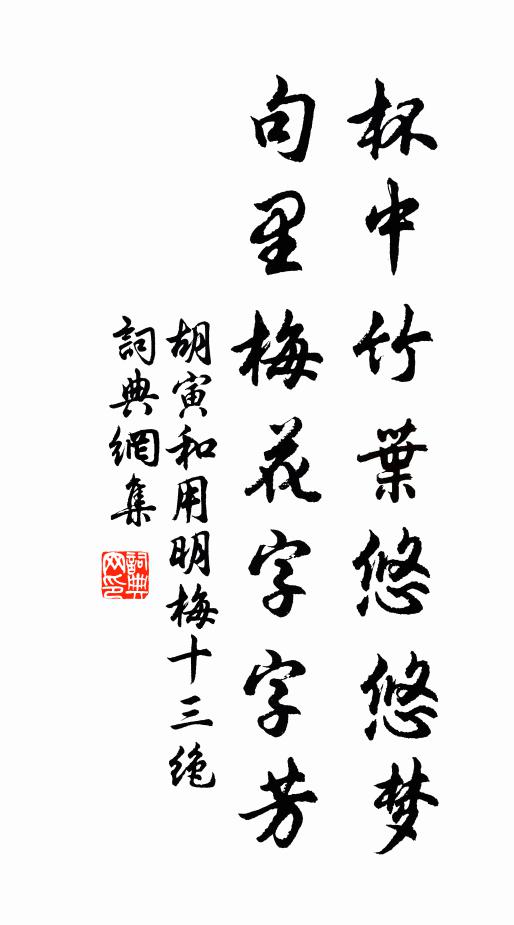 杯中竹葉悠悠梦
句里梅花字字芳
胡寅和用明梅十三绝
詞典網集
詞典网印